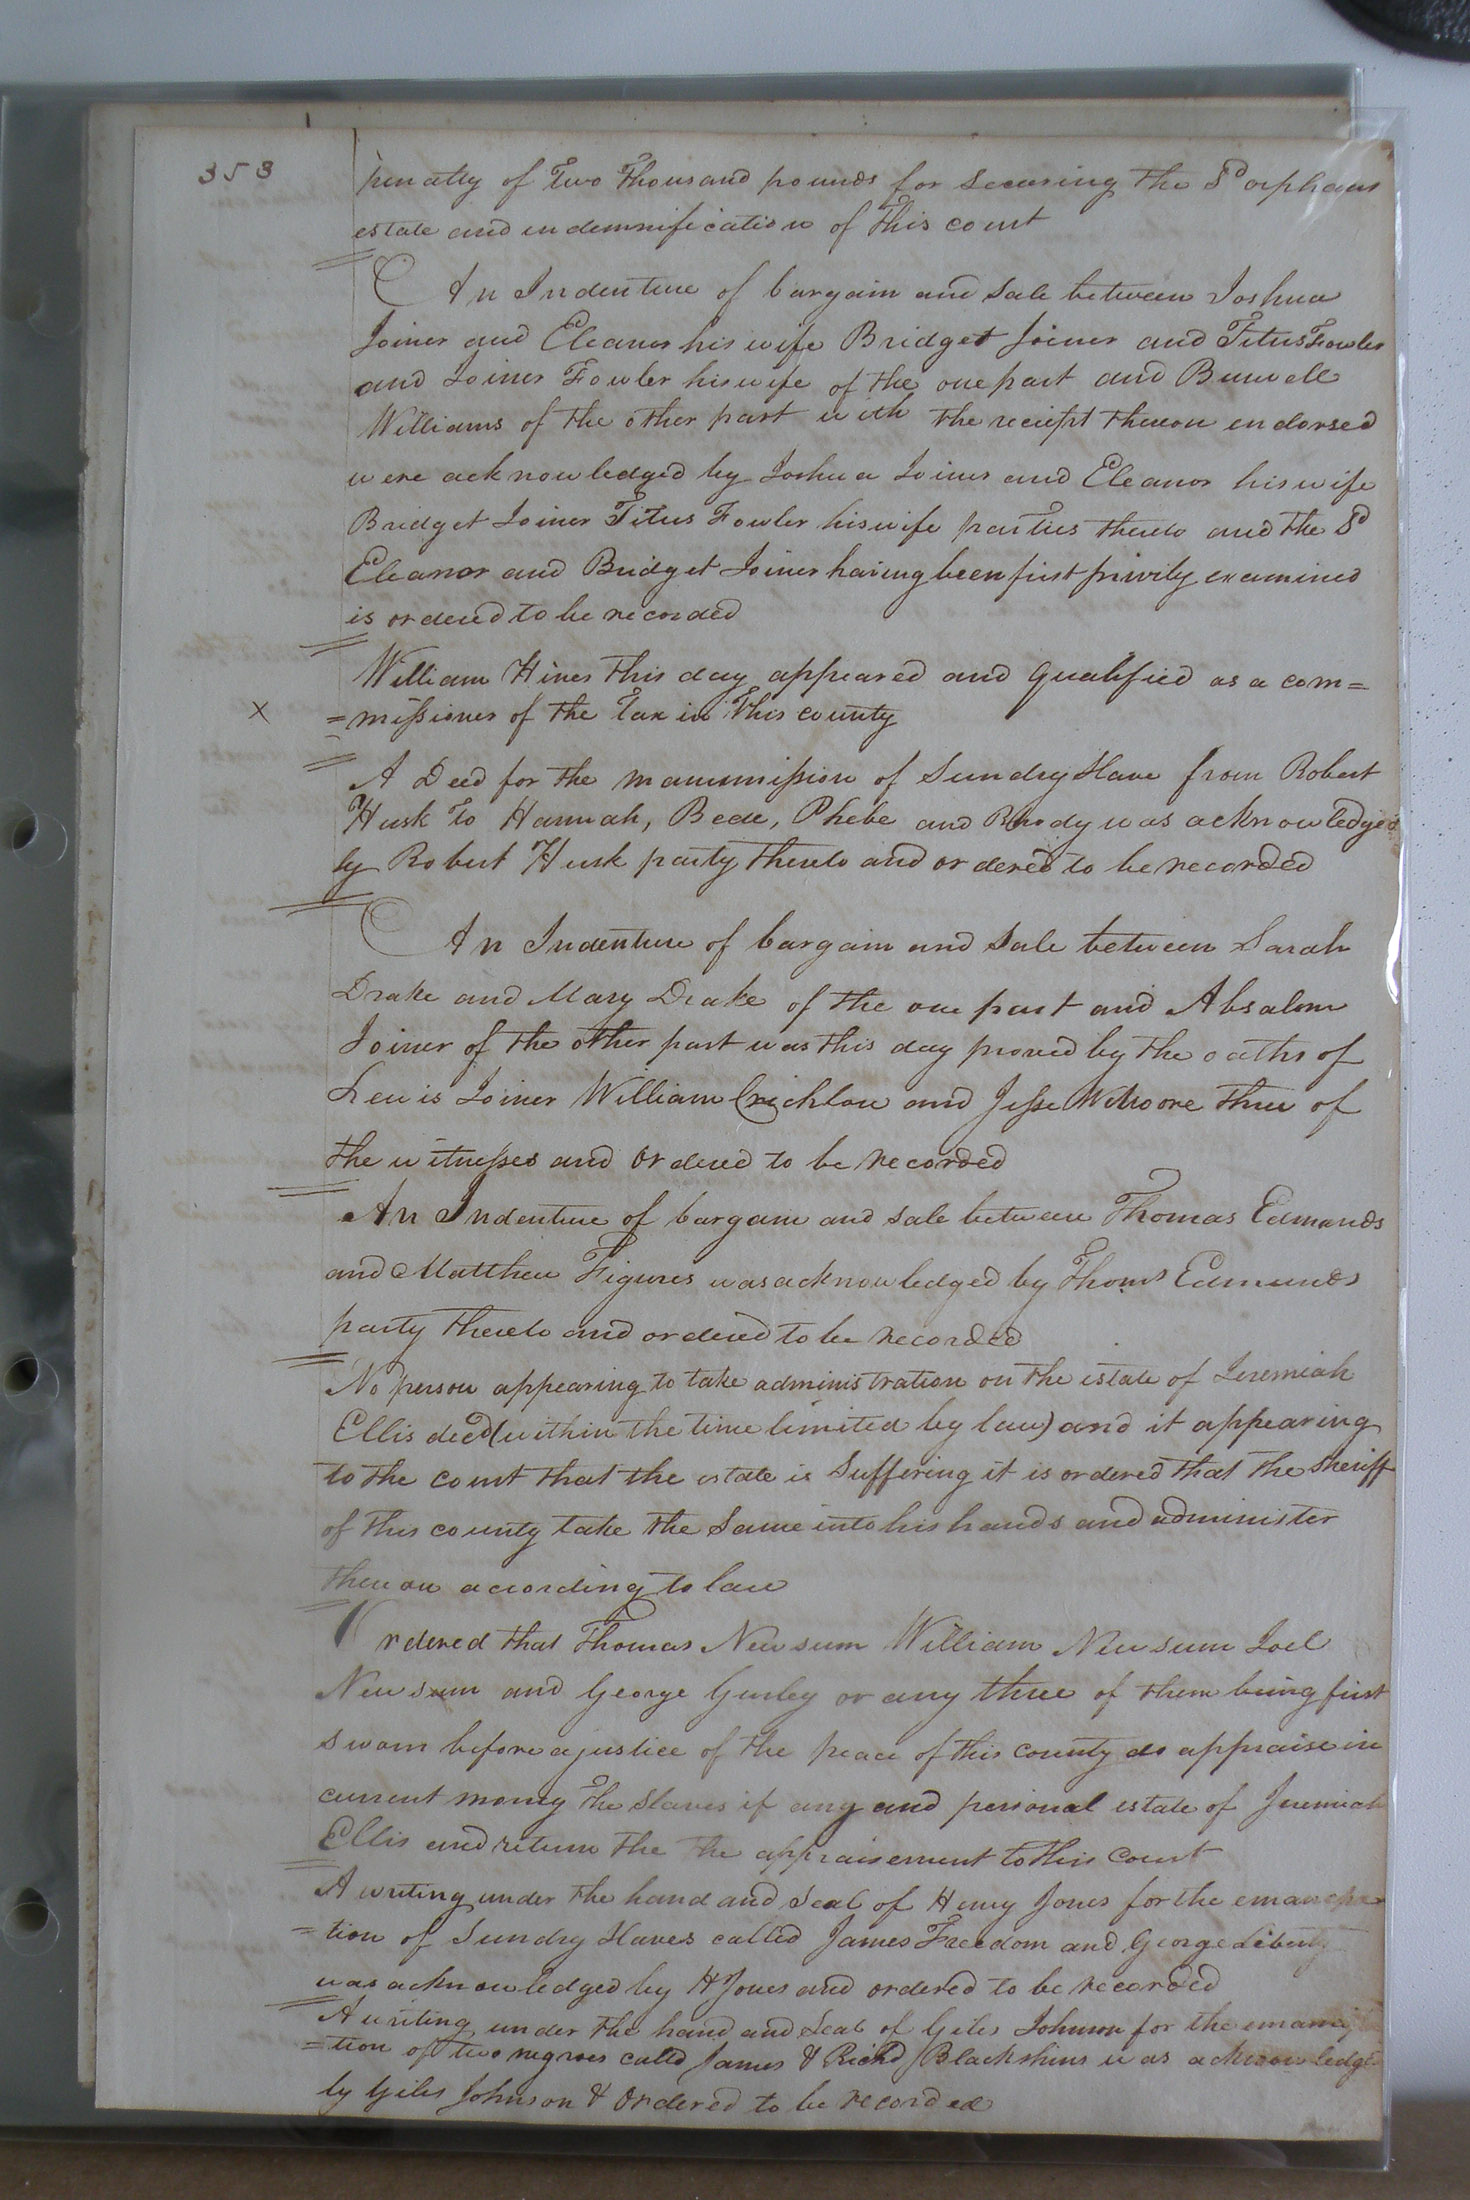 353
penalty of Two Thousand pounds for securing the Sd orphans
estate and indemnification of this court
An Indenture of bargain and Sale between Joshua
Joiner and Eleanor his wife Bridget Joiner and Titus Fowler
and Joiner Fowler his wife of the one part and Burwell
Williams of the other part with the receipt thereon endorsed
were acknowledged by Joshua Joiner and Eleanor his wife
Bridget Joiner Titus Fowler his wife parties thereto and the Sd
Eleanor and Bridget Joiner having been first privily examined
is ordered to be recorded
William Hines this day appeared and qualified as a com=
x =missioner of the Tax in this county
A Deed for the manumission of Sundry Slave from Robert
Husk to Hannah, Bede, Phebe and was acknowledged
by Robert Husk party thereto and ordered to be recorded
An Indenture of bargain and Sale between Sarah
Drake and Mary Drake of the one part and Absalom
Joiner of the other part was this day proved by the oaths of
Lewis Joiner William Crichlow and Jesse Whoore three of
the witnesses and ordered to be recorded
An Indenture of bargain and Sale between Thomas Edmunds
and Matthew Figures was acknowledged by Thoms Edmunds
party thereto and ordered to be recorded
No person appearing to take administration on the estate of Jeremiah
Ellis decd (within the time limited by law) and it appearing
to the court that the estate is Suffering it is ordered that the Sheriff
of this county take the Same into his hands and administer
thereon according to law
Ordered that Thomas Newsum William Newsum Joel
Newsum and George Gurley or any three of them being first
sworn before a justice of the peace of this county do appraise in
current money the Slaves if any and personal estate of Jeremiah
Ellis and return the the appraisement to this Court
A writing under the hand and Seal of Henry Jones for the emancipa
=tion of Sundry Slaves called James Freedom and George Liberty
was acknowledged by H Jones and ordered to be recorded
A writing under the hand and Seal of Giles Johnson for the emancipa
=tion of two negroes called James & Richd Blackshins was acknowledged
by Giles Johnson & Ordered to be recorded